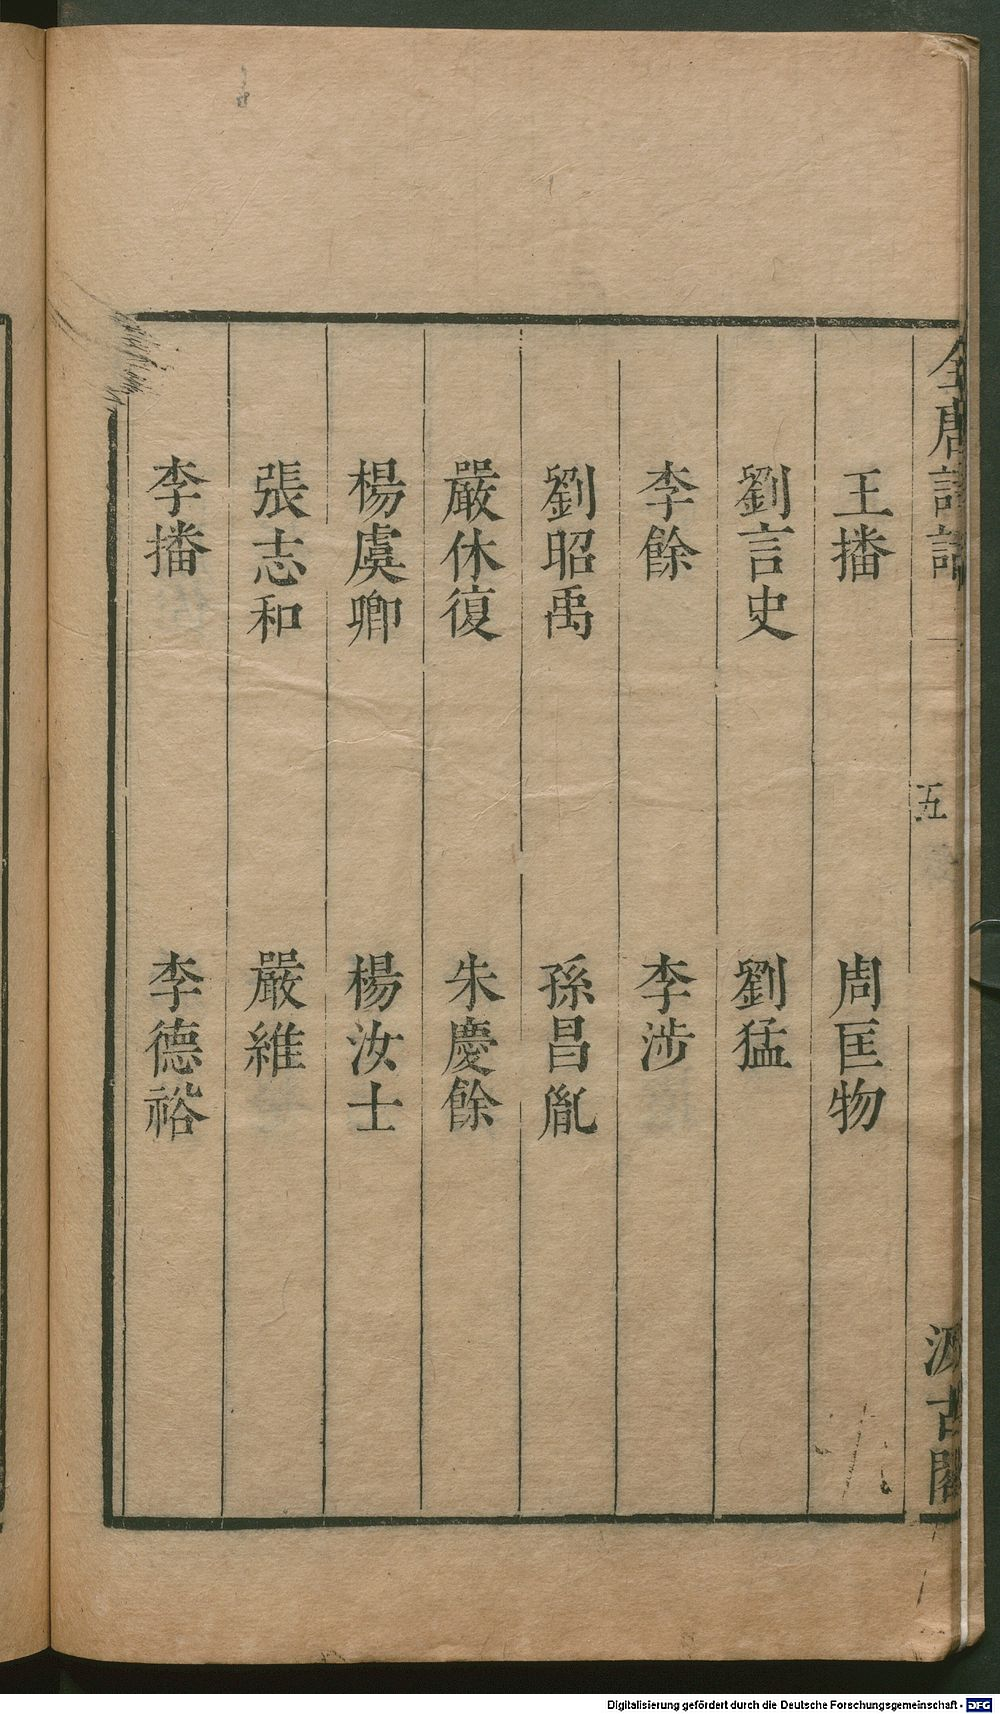 全唐詩話
五
汲古閣
王播　周匡物
劉言史　劉猛
李餘　李涉
劉昭禹　孫昌胤
嚴休復　朱慶餘
楊虞卿　楊汝士
張志和　嚴維
李播　李德裕
Digitalisierung gefördert durch die Deutsche Forschungsgemeinschaft - DFG